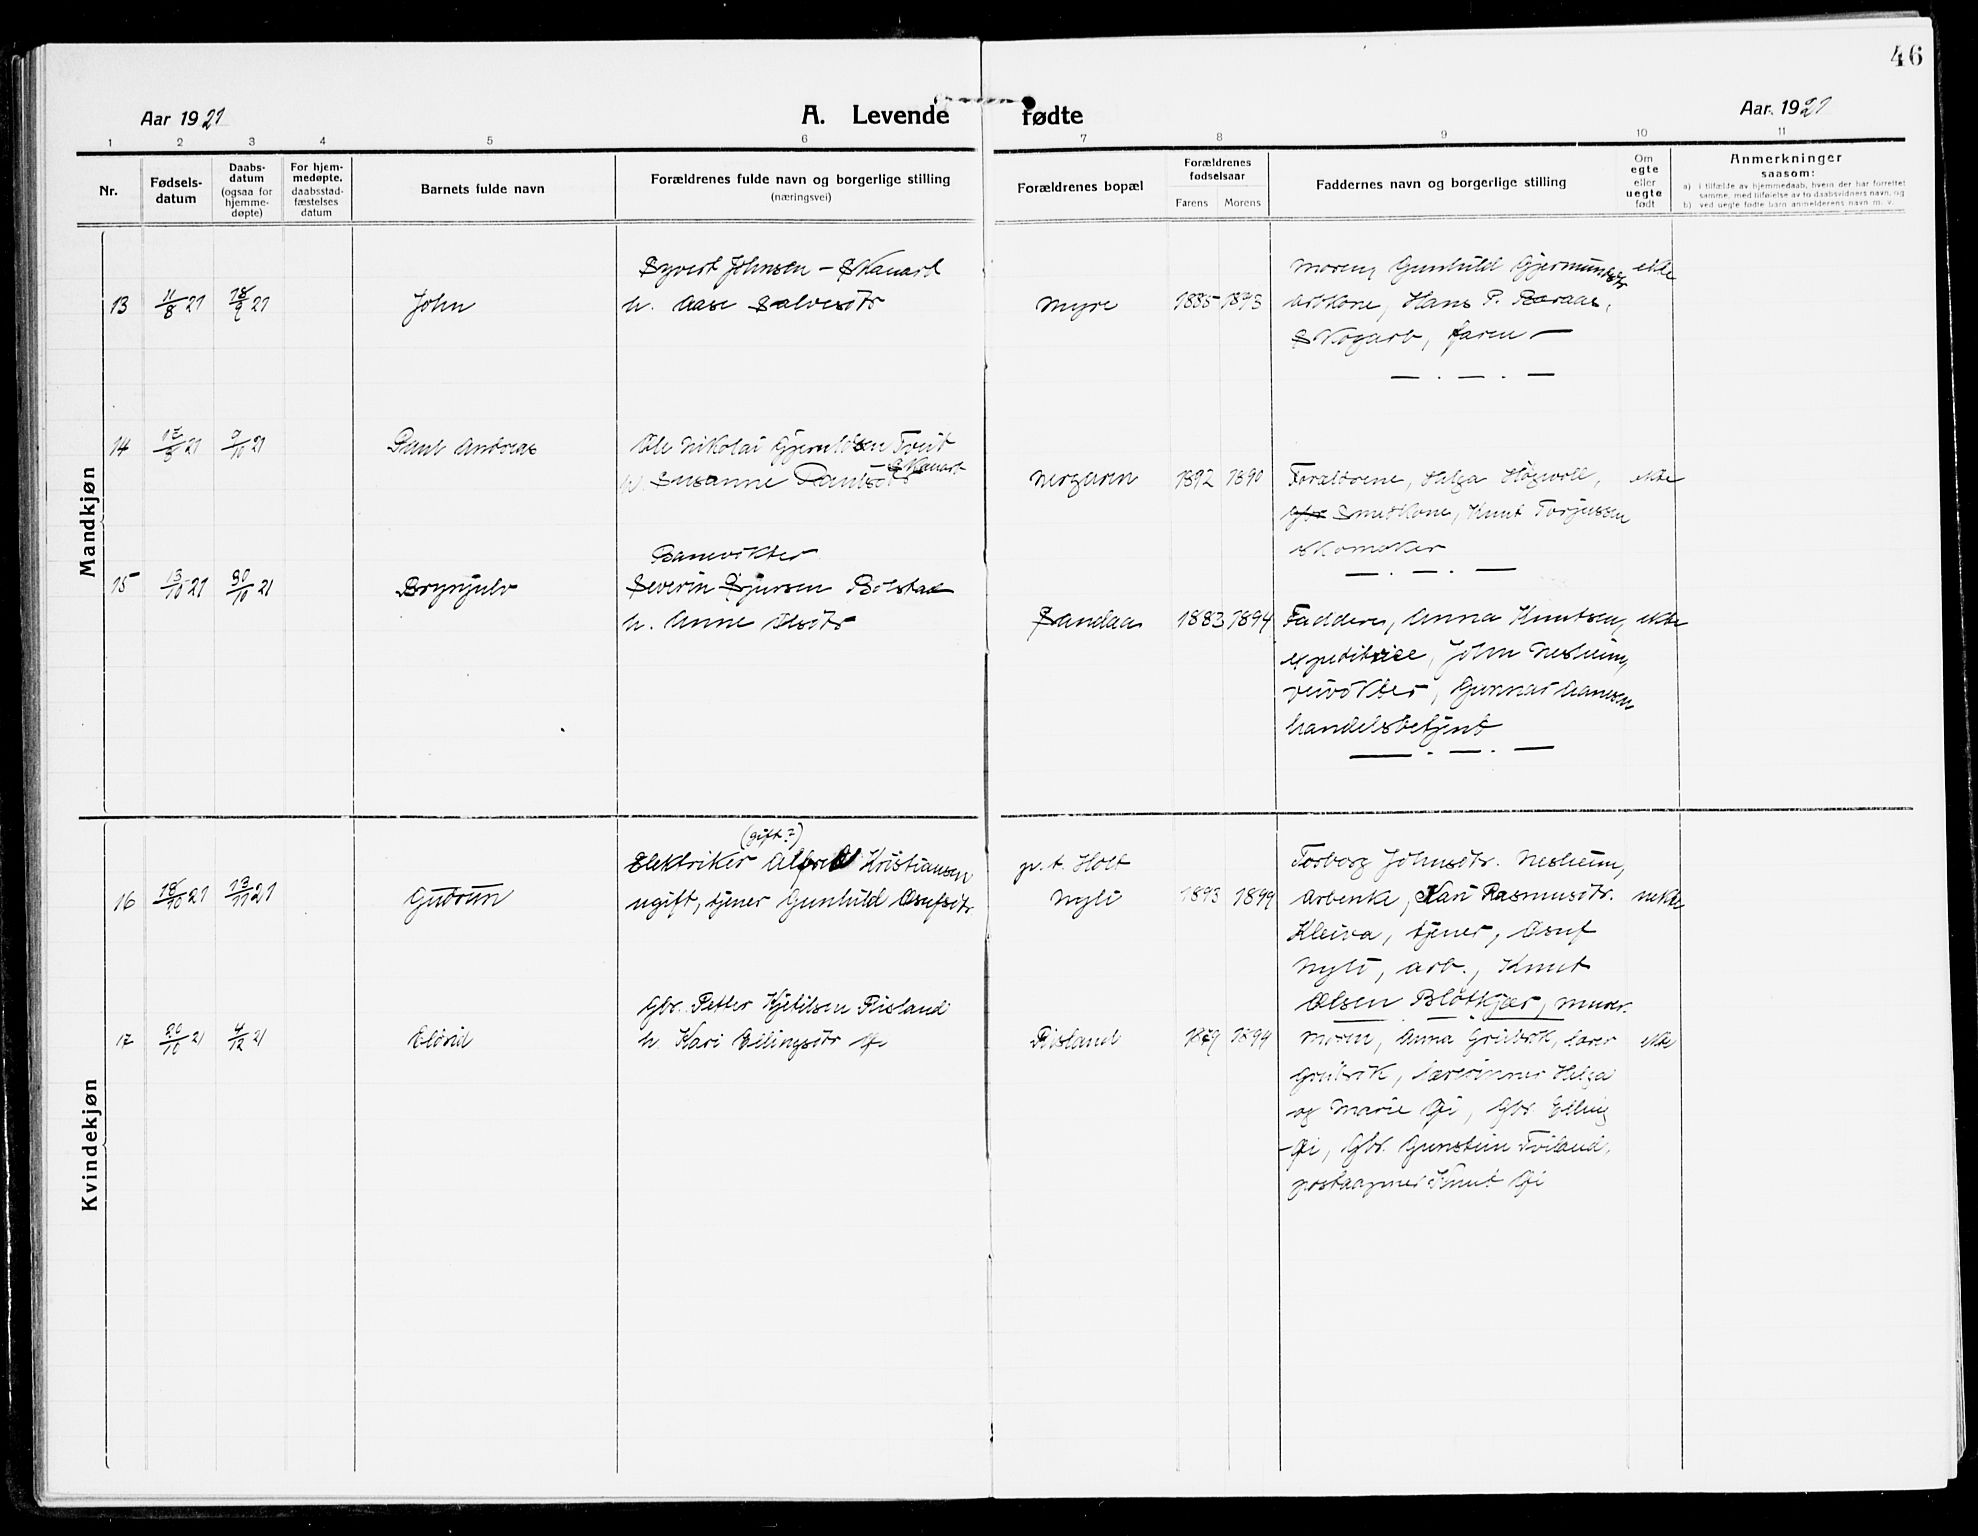 46
Aar 1921
A. Levende fødte
Aar. 1921
1 2 3 4 5 6 7 8 9 10 11
Nr.
Fødsels-
datum
Daabs-
datum
(ogsaa for
hjemme-
døpte)
For hjem-
medøpte.
daabsstad-
fæstelses
datum
Barnets fulde navn
Forældrenes fulde navn og borgerlige stilling
(næringsvei)
Forældrenes bopæl
Forældrenes
fødselsaar
Farens Morens
Faddernes navn og borgerlige stilling
Om
egte
eller
uegte
født
Anmerkninger
saasom:
a) i tilfælde av hjemmedaab, hvem der har forrettet
samme, med tilføielse av to daabsvidners navn, og
b) ved uegte fødte barn anmelderens navn m. v.
Mandkjøn
13 11/8 21 18/9 21 John
Syvert Johnsen -
h. Aase Salvesdtr
Myre 1885 1893
Moren, Gunhild Gjermundsdtr
arbkone, Hans P.
Skogarb, faren —
ekte
14 9/10 21 Paul Andreas
Ole Nikolai Tveit
h. Susanne Paulsdtr
1892 1890
Forældrene, Helga
Smedkone, Knut Torjussen
skomaker
ekte
15 13/10 21 30/10 21 Brynjulv
Banevokter
Severin Sjursen Bolstad
h. Anne Olsdtr
Sandaa 1883 1894
Faddere, Anna Knutsen,
expeditrice, John Nesheim,
veivokter, Gunnar Aanesen
handelsbetjent
ekte
Kvindekjøn
16 18/10 21 13/11 21 Gudrun
(gift?)
Elektriker Alfred Kristiansen
ugift, tjener Gunhild Osufsdtr.
p.t. Holt
Nyli 1893 1899
Torborg Johnsdtr. Nesheim,
Arbenke, Kari Rasmusdtr.
Kleiva, tjener, Osuf
Nyli, arb., Knut
Olsen Blötkjær, murer.
uekte
17 20/10 21 4/12 21 Eldrid
Gbr. Petter Kjetilsen Risland
h. Kari Ellingsdtr Øi
Risland 1879 1894
Moren, Anna Greibrok, lærer
Greibrok, lærerinner Helga
og Marie Øi, Gbr. Elling
Øi, Gbr. Gunstein Tviland,
postaapner Knut Øi
ekte